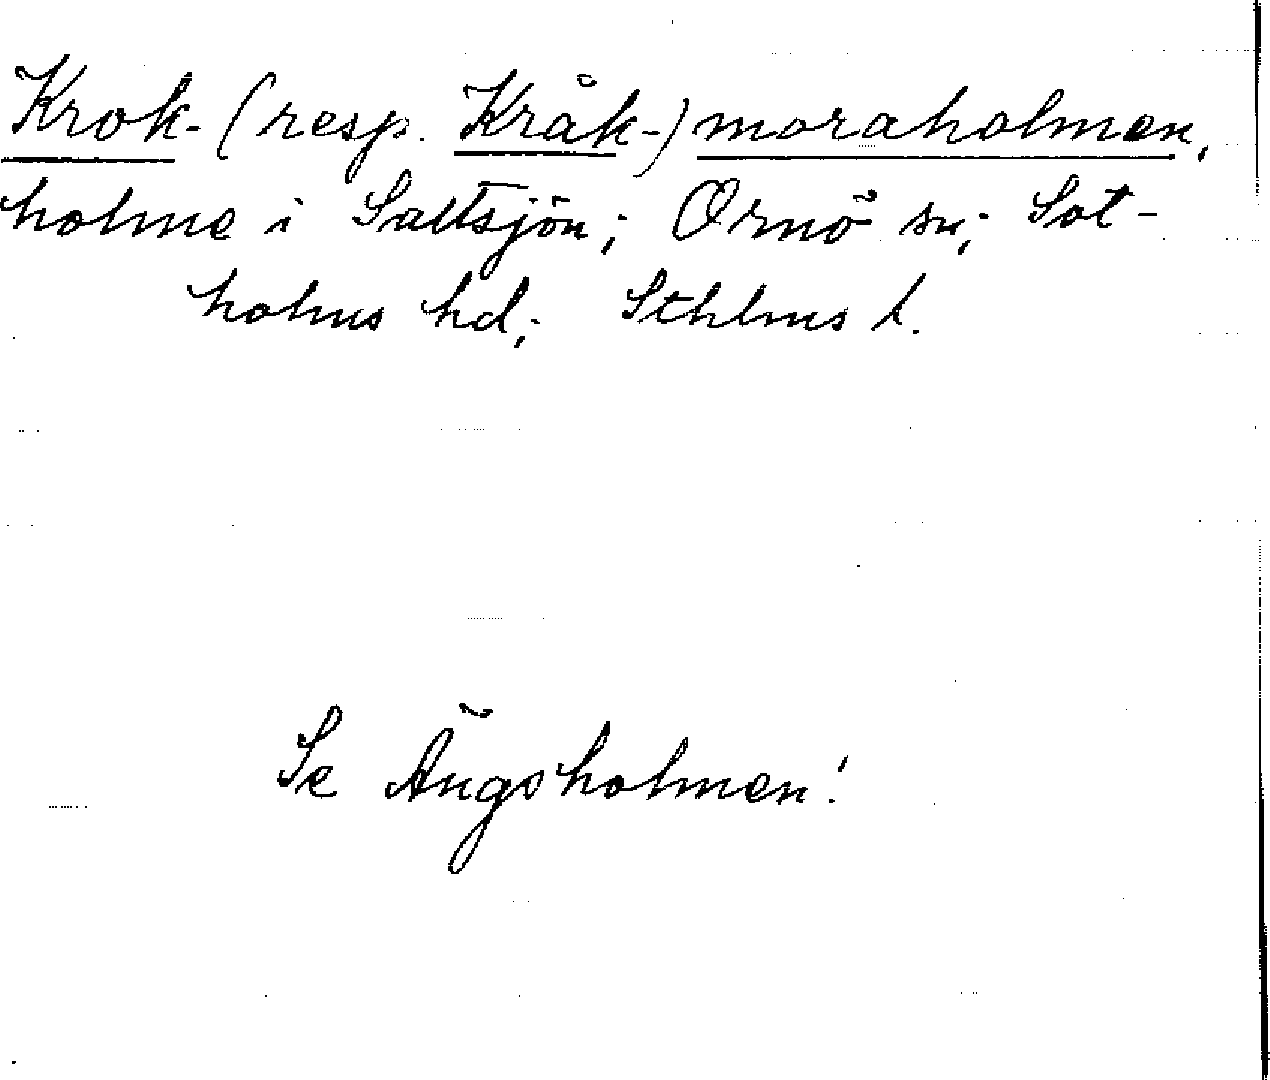 Krok- (resp. Kråk-) moraholmen,
holme i Saltsjön; Ornö sn; Sot-
holms hd; Sthlms l.
Se Ängsholmen!